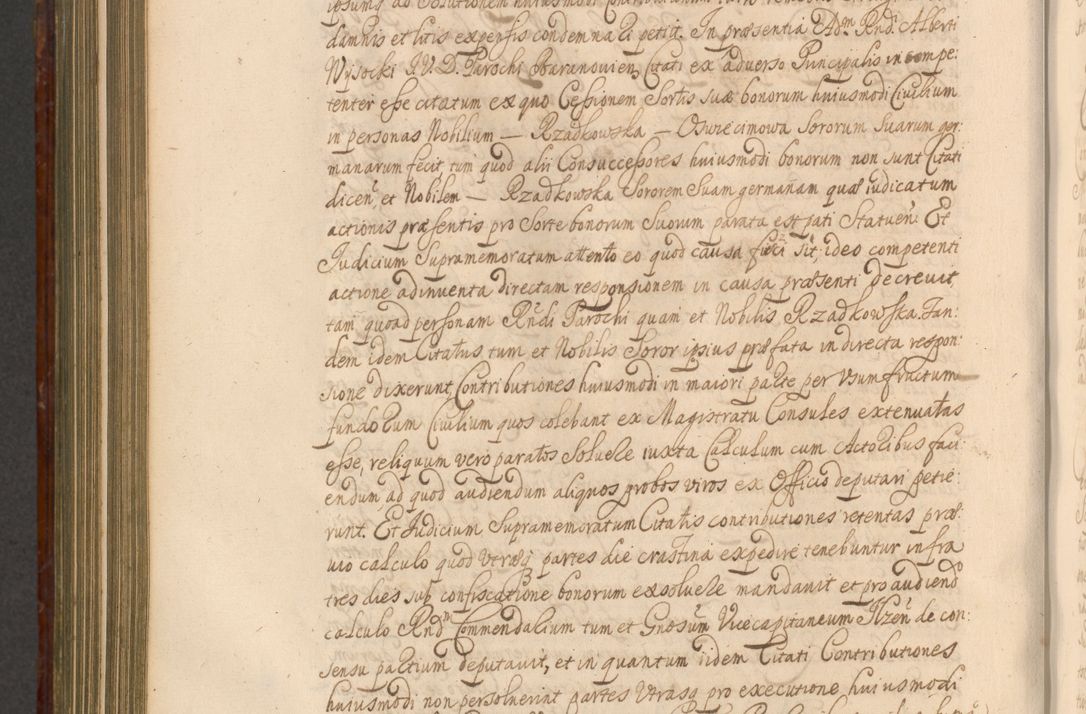 ipsums ad Solutionem huiusmodi
damnis et litis expensis condemnari petiit. In præsentia Adm Rnd. Alberti
Wysocki I. V. D. Parochi Baranovien Citati ex adverso Principalis incompe:
tenter esse citatum ex quo Cessionem Sortis suæ bonorum huiusmodi Civilium
in personas Nobilium — Rzadkowska — Oswiecimowa Sororum Suarum ger:
manarum fecit, tum quod alii Consuccessores huiusmodi bonorum non sunt Citati
dicen, et Nobilem — Rzadkowska Sororem Suam germanam quæ iudicatum
actionis præsentis pro Sorte bonorum Suorum parata est pati Statuen. Et
Judicium Supramemoratum attento eo quod causa fisci sit, ideo competenti
actione adinventa directam responsionem in causa præsenti decrevit
tam quoad personam Rndi Parochi quam et Nobilis Rzadkowska. Tan:
dem idem Citatus tum et Nobilis Soror ipsius præfata in directa respon:
sione dixerunt, Contributiones huiusmodi in maiori parte per Usum fructum
fundorum Civilium quos colebant ex Magistratu Consules extenuatas
esse, reliquum vero paratos Solvere iuxta Calculum cum Actoribus faci:
endum ad quod audiendum aliquos probos viros ex Officio deputari petie:
runt. Et Judicium Supramemoratum Citatis contributiones retentas præ:
vio calculo quod utræq partes die crastina expedire tenebuntur infra
tres dies sub confiscatione bonorum exsolvere mandavit et pro audiendo
calculo Rndm Commendarium tum et Gnosum Vicecapitaneum Ilzen de con:
sensu partium deputavit, et in quantum iidem Citati Contributiones
huiusmodi non persolverint partes Utrasq pro executione huiusmodi